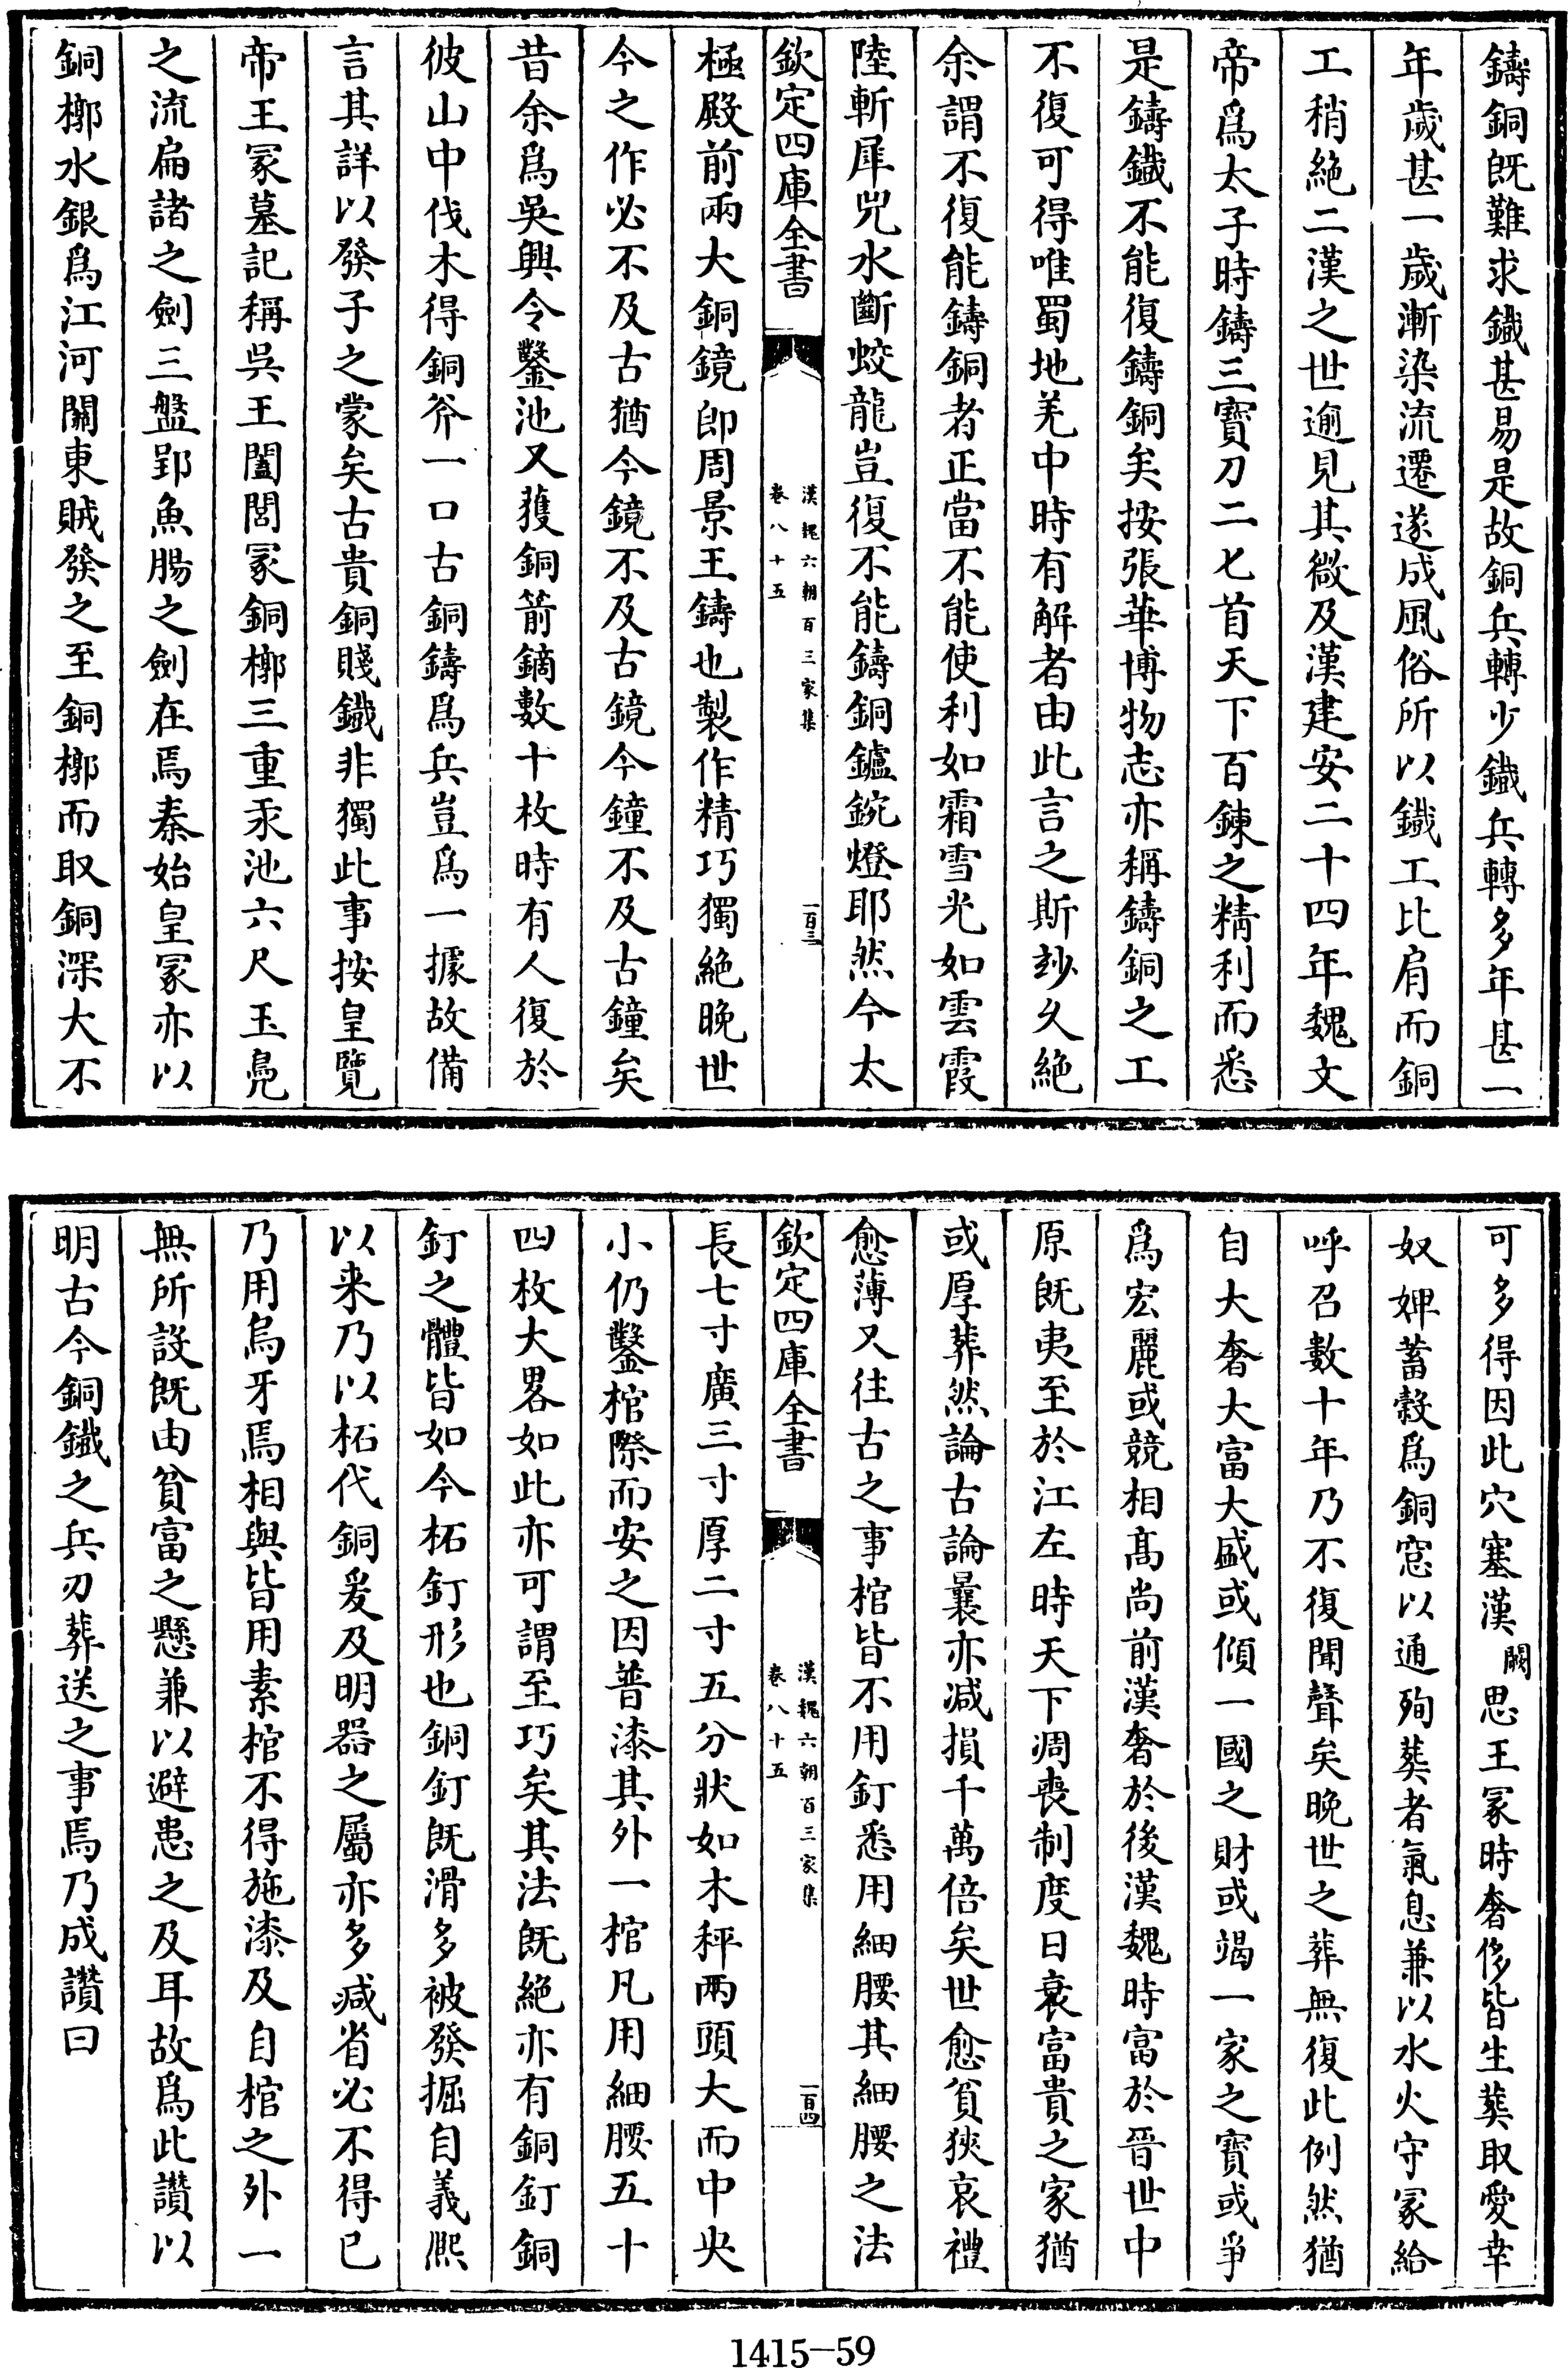 鑄銅既難求鐵甚易是故銅兵轉少鐵兵轉多年甚一
年歲甚一歲漸染流遷遂成風俗所以鐵工比肩而銅
工稍絶二漢之世逾見其微及漢建安二十四年魏文
帝爲太子時鑄三寶刀二匕首天下百鍊之精利而悉
是鑄鐵不能復鑄銅矣按張華博物志亦稱鑄銅之工
不復可得唯蜀地羌中時有解者由此言之斯玅久絶
余謂不復能鑄銅者正當不能使利如霜雪光如雲霞
陸斬犀兕水斷蛟龍豈復不能鑄銅鑪鋺燈耶然今太
欽定四庫全書
漢魏六朝百三家集
卷八十五
一百三
極殿前兩大銅鏡卽周景王鑄也製作精巧獨絶晚世
今之作必不及古猶今鏡不及古鏡今鐘不及古鐘矣
昔余爲吳興令鑿池又獲銅箭鏑數十枚時有人復於
彼山中伐木得銅斧一口古銅鑄爲兵豈爲一據故備
言其詳以發子之蒙矣古貴銅賤鐵非獨此事按皇覽
帝王冢墓記稱吳王闔閭冢銅槨三重汞池六尺玉鳧
之流扁諸之劍三盤郢魚腸之劍在焉秦始皇冢亦以
銅槨水銀爲江河關東賊發之至銅槨而取銅深大不
可多得因此穴塞漢闕思王冢時奢侈皆生葬取愛幸
奴婢蓄穀爲銅窓以通殉葬者氣息兼以水火守冢給
呼召數十年乃不復聞聲矣晚世之葬無復此例然猶
自大奢大富大盛或傾一國之財或竭一家之寶或爭
爲宏麗或競相高尚前漢奢於後漢魏時富於晉世中
原既夷至於江左時天下凋喪制度日衰富貴之家猶
或厚葬然論古論曩亦减損千萬倍矣世愈貧狹哀禮
愈薄又往古之事棺皆不用釘悉用細腰其細腰之法
欽定四庫全書
漢魏六朝百三家集
卷八十五
一百四
長七寸廣三寸厚二寸五分狀如木秤兩頭大而中央
小仍鑿棺際而安之因普漆其外一棺凡用細腰五十
四枚大畧如此亦可謂至巧矣其法既絶亦有銅釘銅
釘之體皆如今柘釘形也銅釘既滑多被發掘自義熙
以来乃以柘代銅爰及明器之屬亦多减省必不得已
乃用烏牙焉相與皆用素棺不得施漆及自棺之外一
無所設既由貧富之懸兼以避患之及耳故爲此讚以
明古今銅鐵之兵刃葬送之事焉乃成讚曰
1415—59